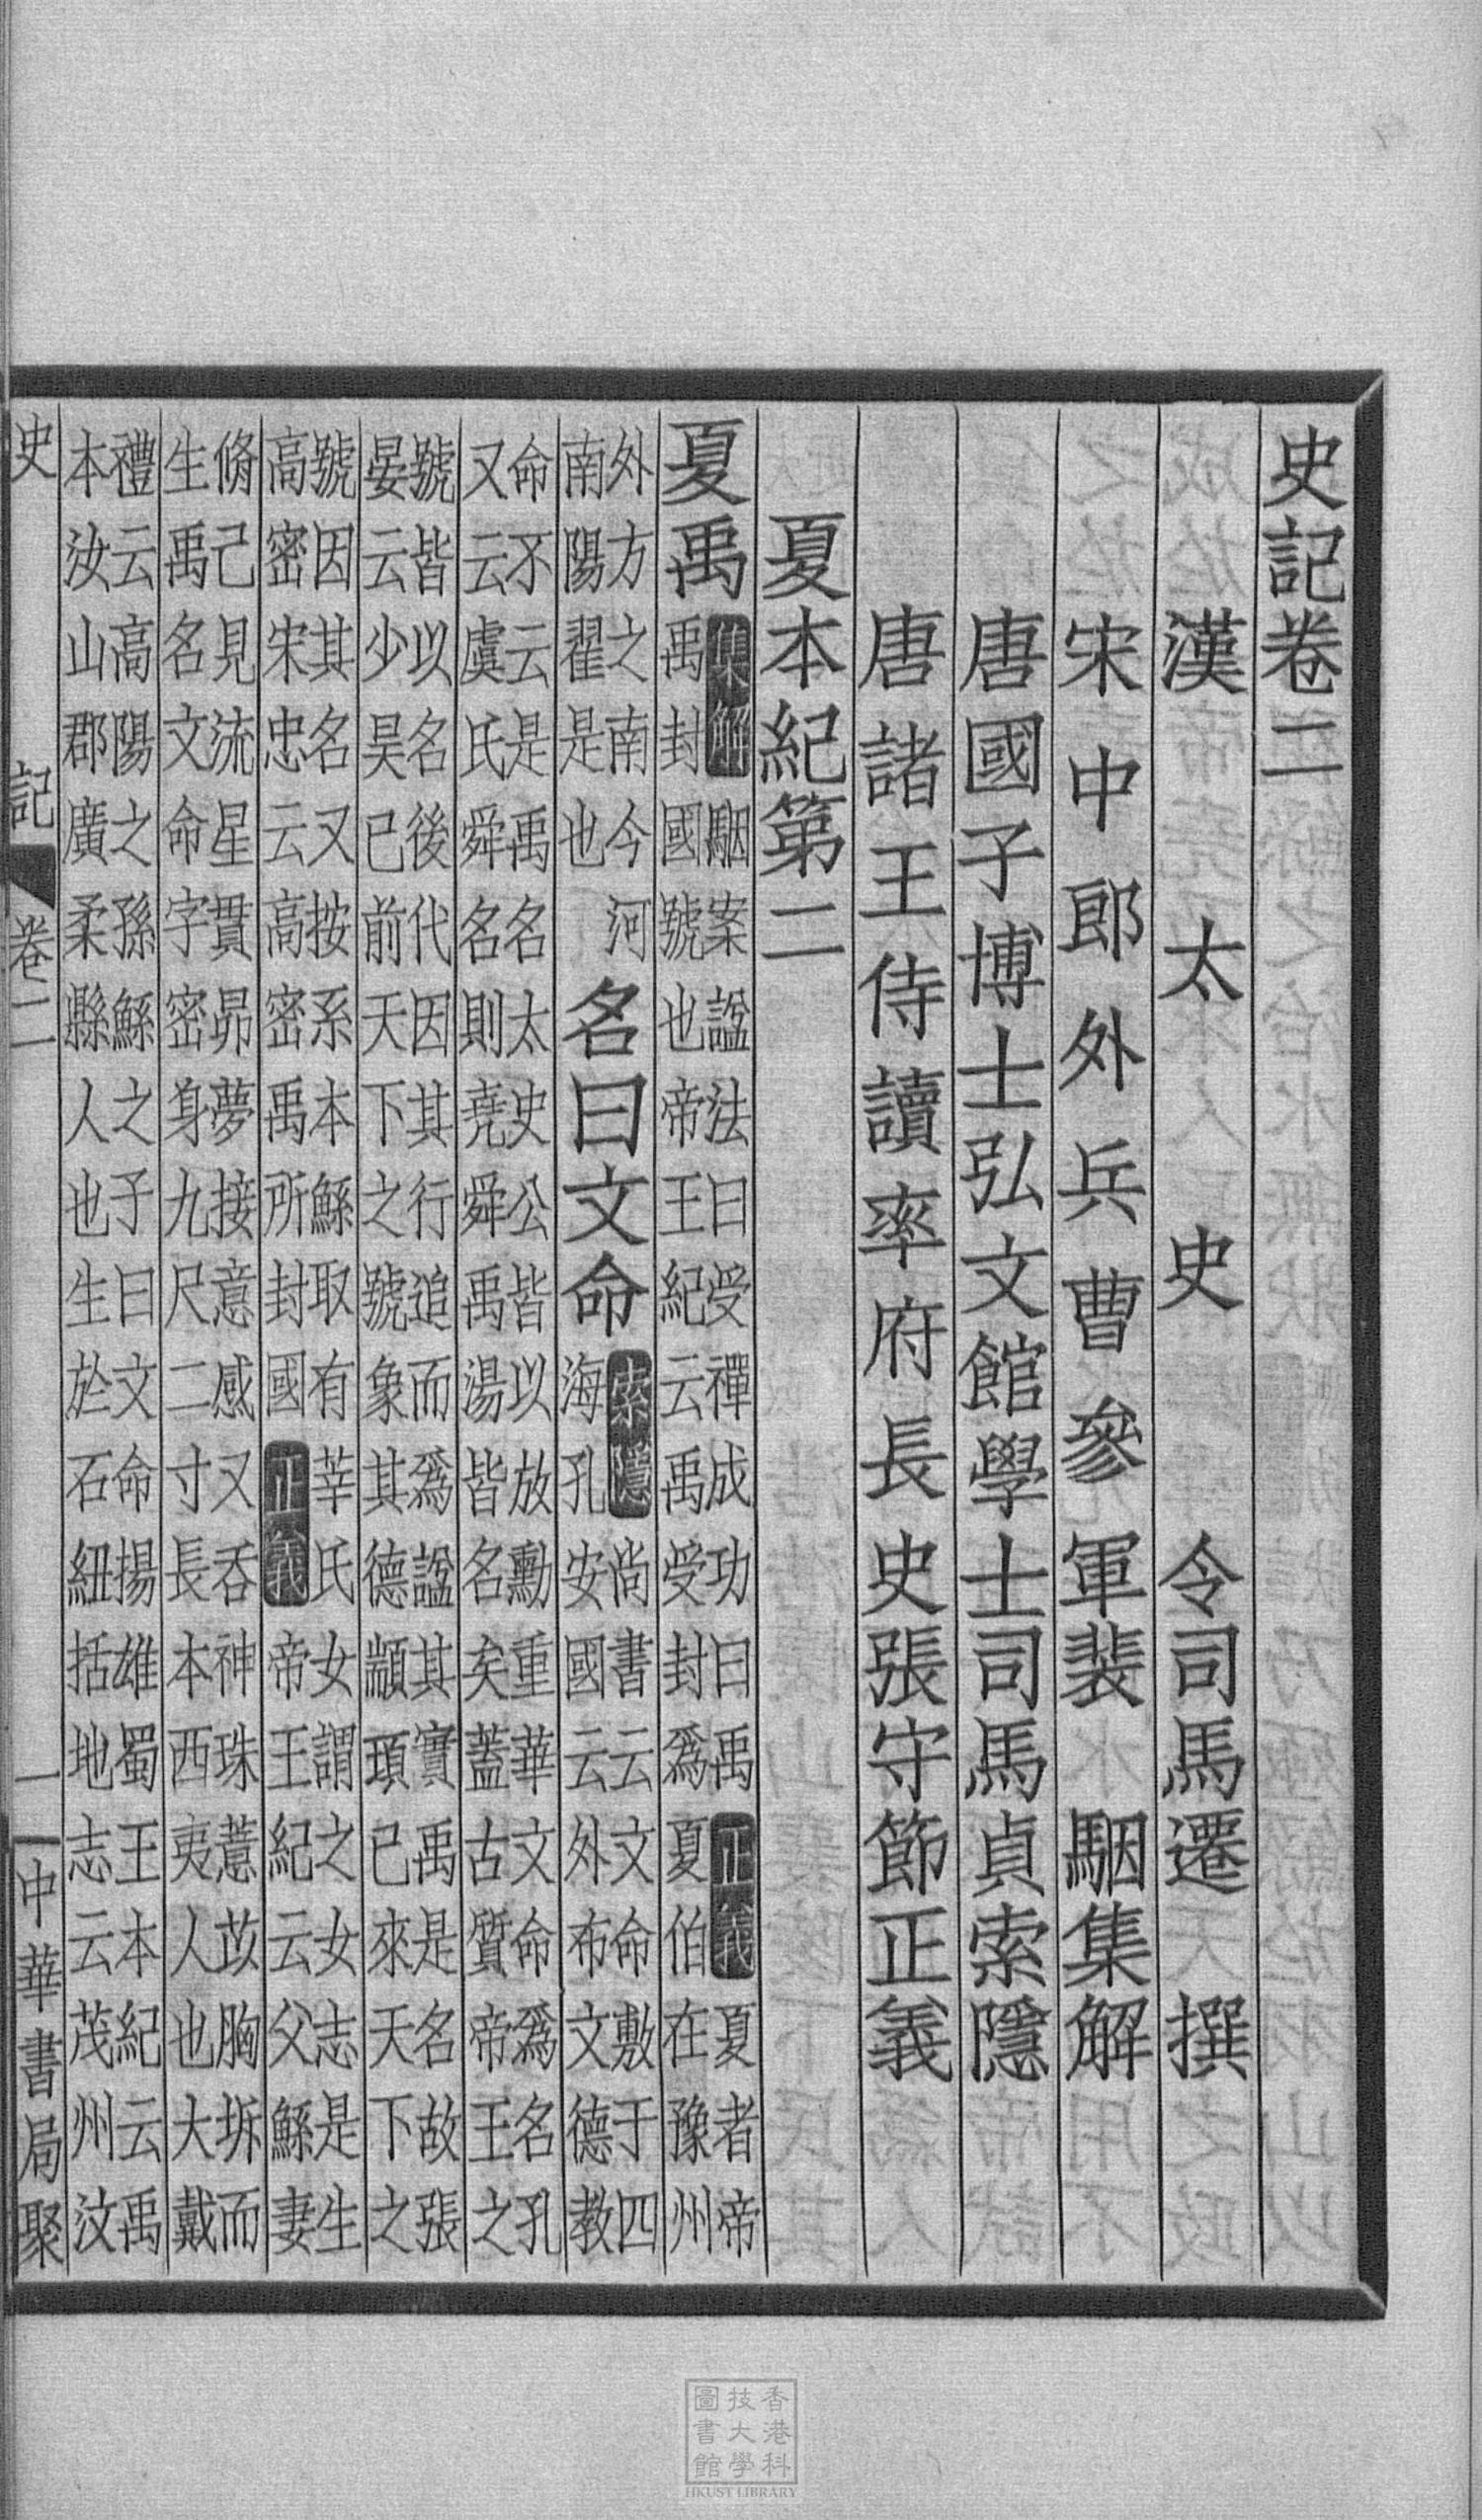 史記卷二
漢太史令司馬遷撰
宋中郎外兵曹參軍裴駰集解
唐國子博士弘文館學士司馬貞索隱
唐諸王侍讀率府長史張守節正義
夏本紀第二
夏禹集解駰案諡法曰受禪成功曰禹正義夏者帝禹封國號也帝王紀云禹受封爲夏伯在豫州
外方之南今河南陽翟是也名曰文命索隱尚書云文命敷于四海孔安國云外布文德教
命不云是禹名太史公皆以放勳重華文命爲名孔又云虞氏舜名則堯舜禹湯皆名矣蓋古質帝王之
號皆以名後代因其行追而爲諡其實禹是名故張晏云少昊已前天下之號象其德顓頊已來天下之
號因其名又按系本鯀取有莘氏女謂之女志是生高密宋忠云高密禹所封國正義帝王紀云父鯀妻
脩己見流星貫昴夢接意感又吞神珠薏苡胸坼而生禹名文命字密身九尺二寸長本西夷人也大戴
禮云高陽之孫鯀之子曰文命揚雄蜀王本紀云禹本汝山郡廣柔縣人也生於石紐括地志云茂州汶
史記 卷二 一 中華書局聚
香港科
技大學
圖書館
HKUST LIBRARY